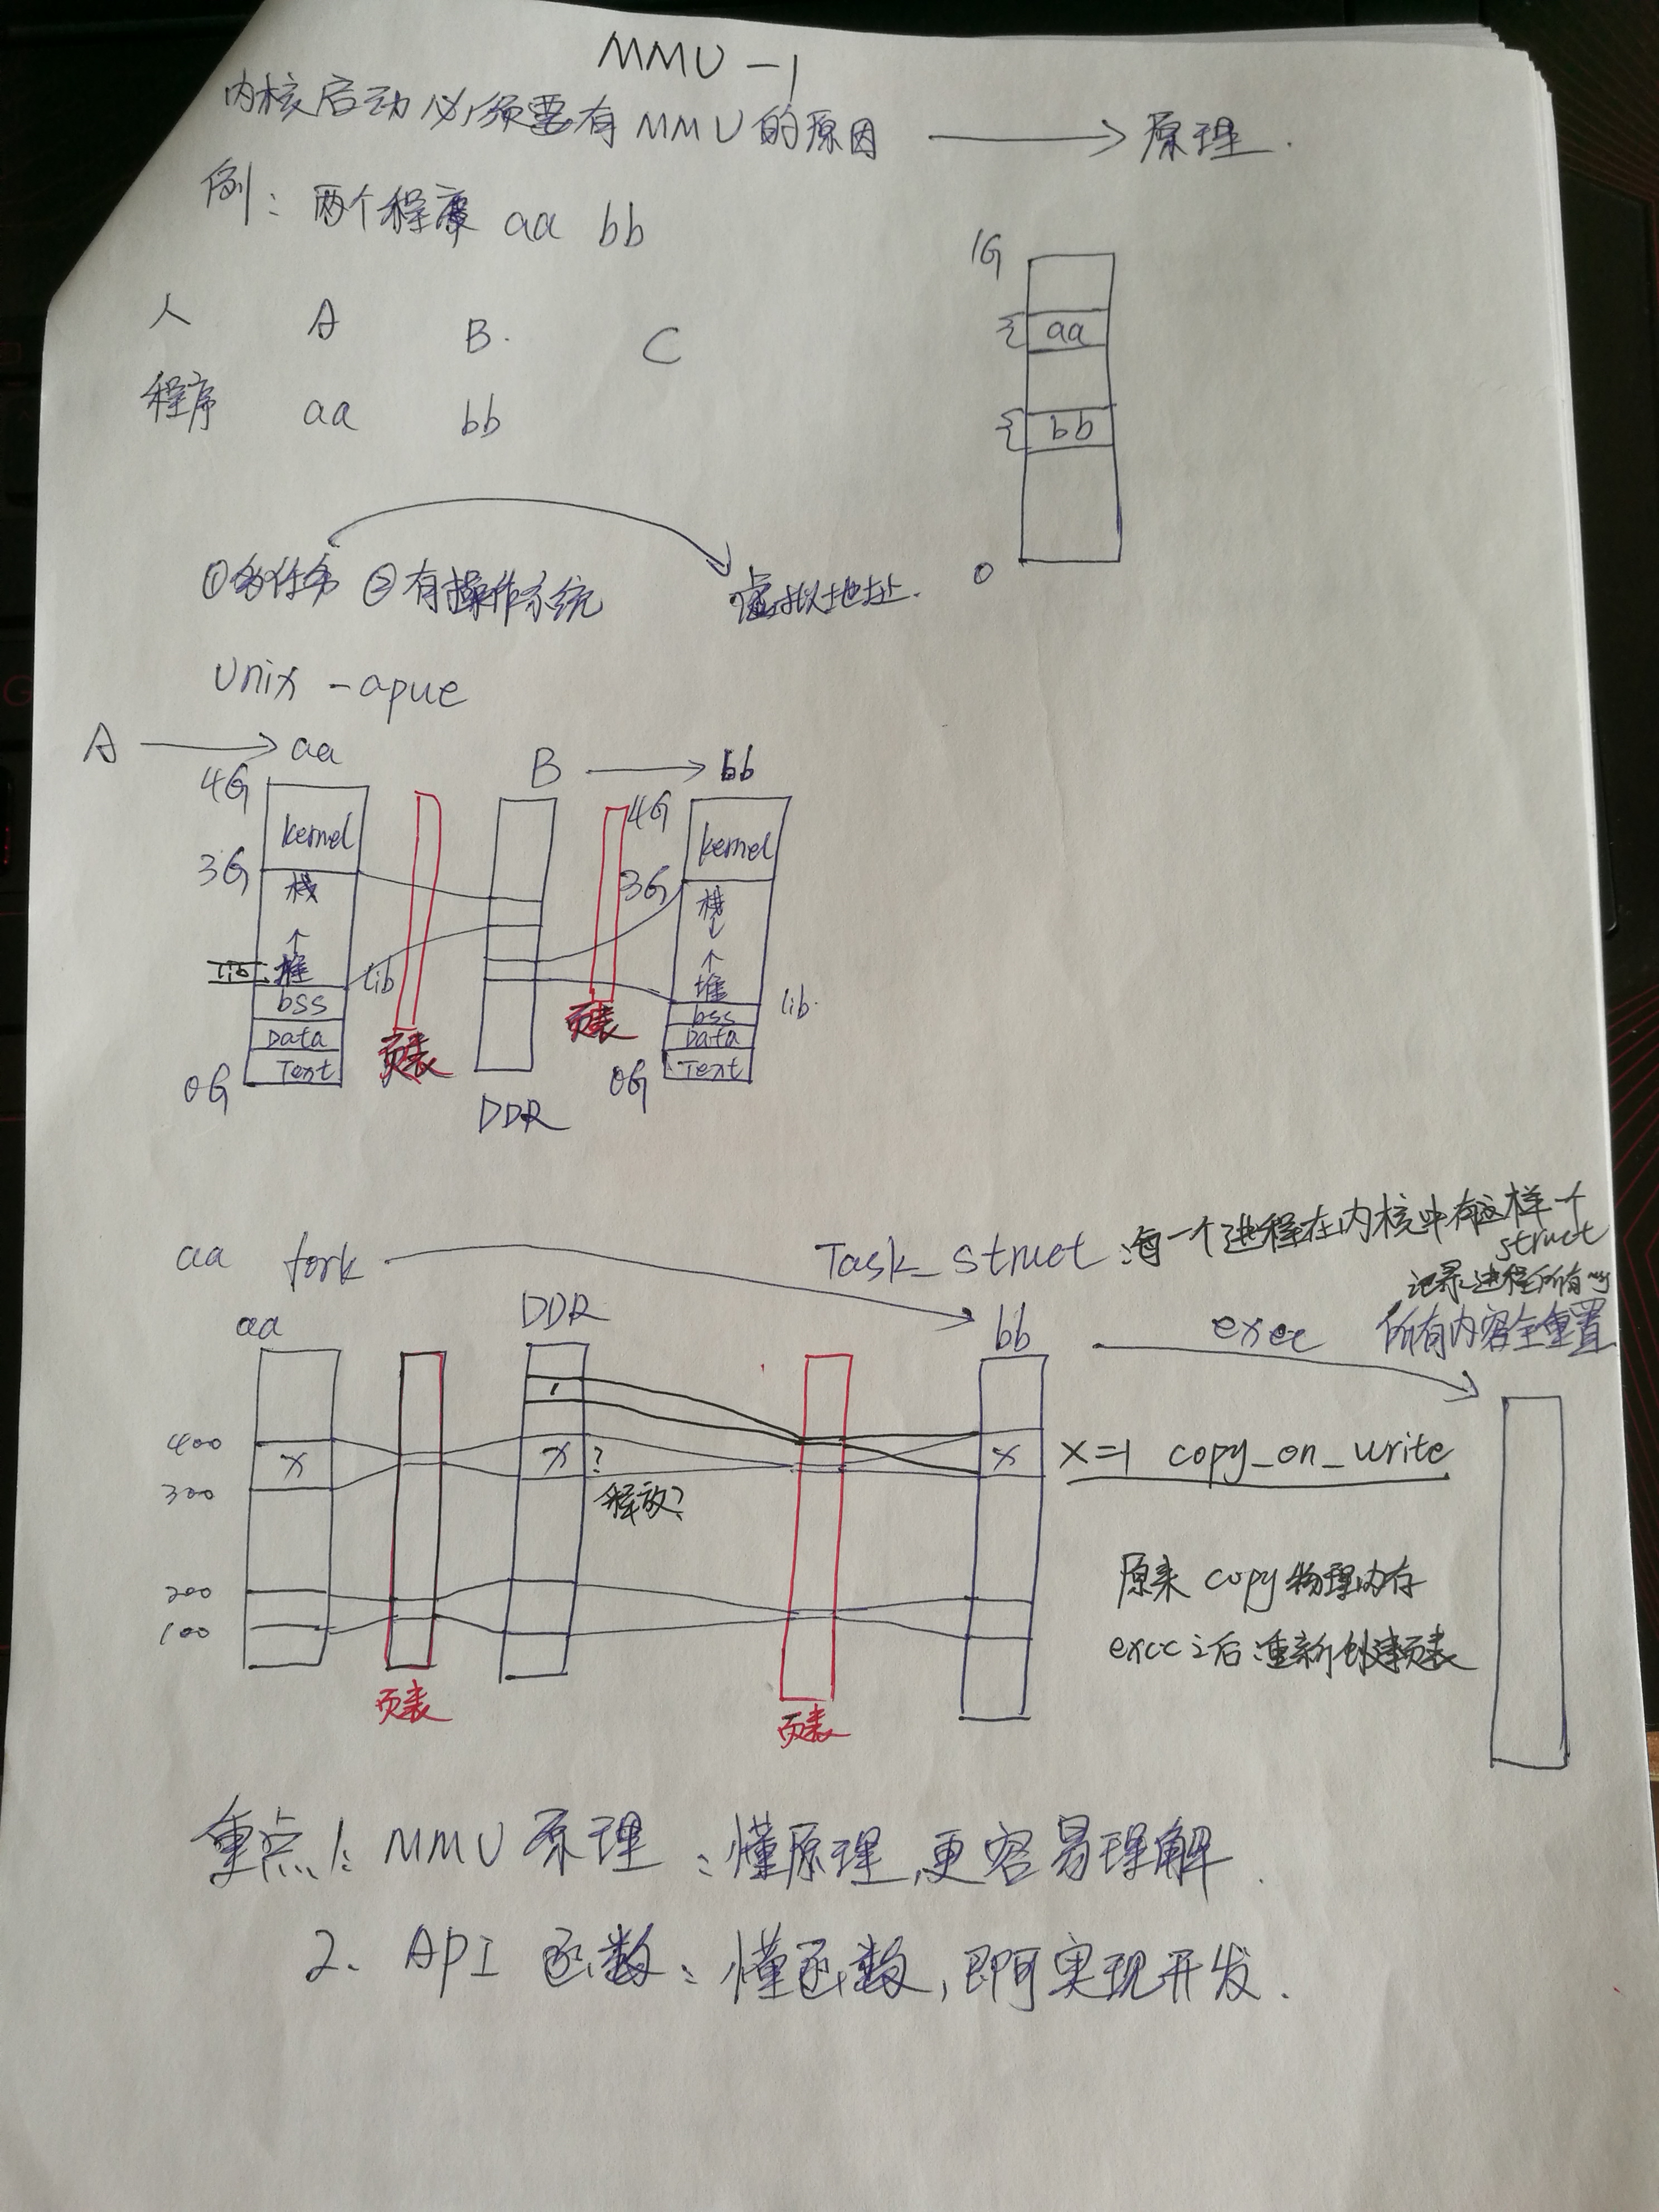 MMU-1
内核启动必须要有MMU的原因 → 原理.
例: 两个程序 aa bb
1G
人 A B. C
aa
程序 aa bb
bb
0
①多任务 ②有操作系统 虚拟地址.
Unix -apue
A → aa
B → bb
4G
4G
kernel
kernel
3G 栈
3G 栈
↑
↓
↑
lib 堆 lib
堆
bss
bss lib.
Data
Data
Text
Text
0G
0G
页表
页表
DDR
aa fork Task_struct: 每一个进程在内核中有这样一个
struct
记录进程所有的
aa DDR bb exec 所有内容全重置
400
x x ? x x=1 copy_on_write
300
释放?
200
100
原来copy物理内存
exec之后:重新创建页表
页表
页表
重点1: MMU原理: 懂原理,更容易理解.
2. API 函数: 懂函数,即可实现开发.